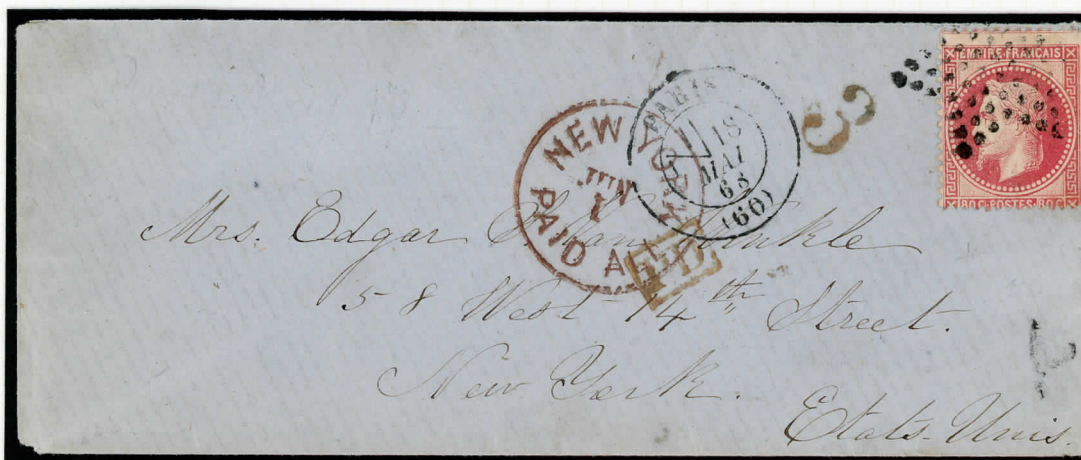 EMPIRE FRANÇAIS
80 C · POSTES · 80 C
PARIS
18
MAI
68
(60)
3
NEW YORK
JUN
1
PAID ALL
P.D.
Mrs. Edgar Van Winkle
58 West 14th Street.
New York.
Etats-Unis.